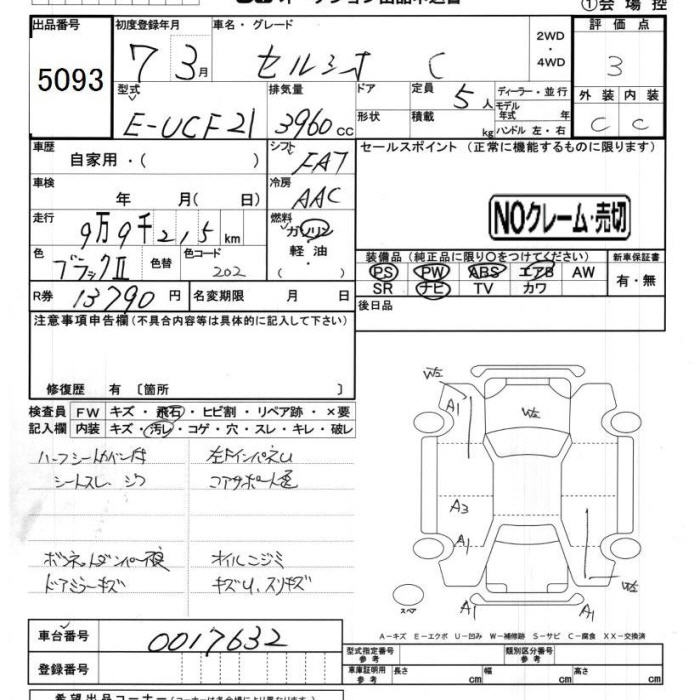 ①会場控
出品番号
5093
初度登録年月
7 3月
車名・グレード
セルシオ C
2WD
・
4WD
評価点
3
型式
E-UCF21
排気量
3960 cc
ドア
形状
定員
5人
積載
kg
ディーラー・並行
モデル年式 年
ハンドル 左・右
外装 内装
C C
車歴
自家用・( )
シフト
FAT
セールスポイント (正常に機能するものに限ります)
車検
年 月( 日)
冷房
AAC
NOクレーム・売切
走行
9万9千215km
燃料
ガソリン
軽油
・
( )
色
ブラックⅡ
色替
色コード
202
装備品 (純正品に限り〇をつけてください)
PS PW ABS エアB AW
SR ナビ TV カワ
新車保証書
有・無
R券
13790円
名変期限 月 日
後日品
注意事項申告欄(不具合内容等は具体的に記入して下さい)
修復歴 有 〔箇所 〕
検査員記入欄
FW キズ・飛石・ヒビ割・リペア跡・×要
内装 キズ・汚レ・コゲ・穴・スレ・キレ・破レ
シートスレ、シワ
ドアミラーキズ
オイルニジミ
W2
A1
W2
A3
A1
W2
スペア
A1
A1
A-キズ E-エクボ U-凹み W-補修跡 S-サビ C-腐食 XX-交換済
車台番号
0017632
登録番号
型式指定番号
参考
類別区分番号
参考
車庫証明用
参考
長さ cm
幅 cm
高さ cm
希望出品コーナー